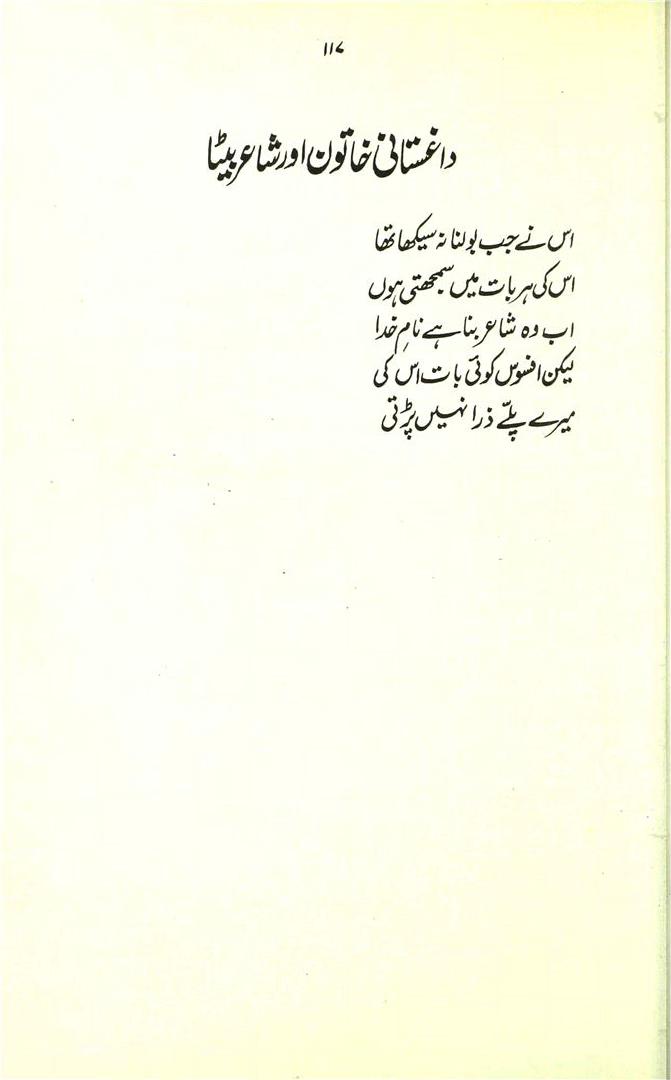 ۱۱۷
داغستانی خاتون اور شاعر بیٹا
اس نے جب بولنا نہ سیکھا تھا
اس کی ہر بات میں سمجھتی ہوں
اب وہ شاعر بنا ہے نامِ خدا
لیکن افسوس کوئی بات اس کی
میرے پلّے ذرا نہیں پڑتی